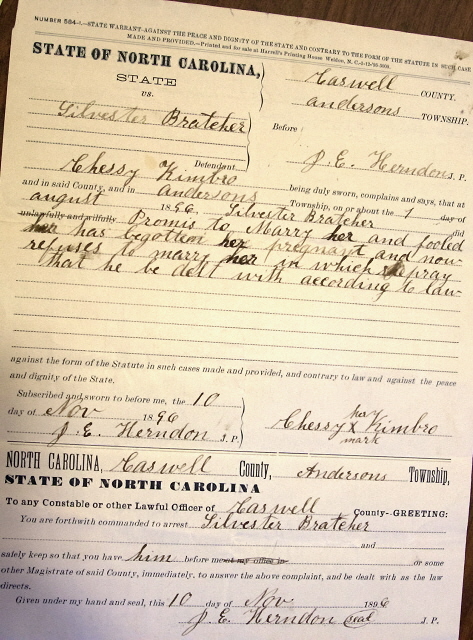 NUMBER 584—STATE WARRANT—AGAINST THE PEACE AND DIGNITY OF THE STATE AND CONTRARY TO THE FORM OF THE STATUTE IN SUCH CASE
MADE AND PROVIDED.—Printed and for sale at Harrell's Printing House Weldon, N. C.
STATE OF NORTH CAROLINA,
Caswell COUNTY.
STATE
andersons TOWNSHIP.
vs.
Silvester Bratcher
Before
Defendant.
J. E. Herndon J. P.
Chessy Kimbro being duly sworn, complains and says, that at
and in said County, and in andersons Township, on or about the 1 day of
august 1896, Silvester Bratcher did
unlawfully and wilfully Promis to Marry her and fooled
her has begotten her pregnant and now
refuses to marry her in which I pray
that he be delt with according to law
against the form of the Statute in such cases made and provided, and contrary to law and against the peace
and dignity of the State.
Subscribed and sworn to before me, the 10
day of Nov 1896
J. E. Herndon J. P.
her
Chessy X Kimbro
mark
NORTH CAROLINA, Caswell County, Andersons Township,
STATE OF NORTH CAROLINA
To any Constable or other Lawful Officer of Caswell County—GREETING:
You are forthwith commanded to arrest Silvester Bratcher
and
safely keep so that you have him before me at my office in or some
other Magistrate of said County, immediately, to answer the above complaint, and be dealt with as the law
directs.
Given under my hand and seal, this 10 day of Nov 1896
J. E. Herndon seal J. P.